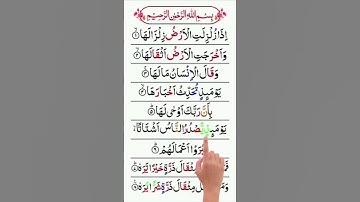 بِسْمِ اللّٰهِ الرَّحْمٰنِ الرَّحِيْمِ
اِذَا زُلْزِلَتِ الْاَرْضُ زِلْزَالَهَا ۙ﴿۱﴾
وَاَخْرَجَتِ الْاَرْضُ اَثْقَالَهَا ۙ﴿۲﴾
وَقَالَ الْاِنْسَانُ مَا لَهَا ۚ﴿۳﴾
يَوْمَىِٕذٍ تُحَدِّثُ اَخْبَارَهَا ۙ﴿۴﴾
بِاَنَّ رَبَّكَ اَوْحٰى لَهَا ﴿۵﴾
يَوْمَىِٕذٍ يَّصْدُرُ النَّاسُ اَشْتَاتًا ۙ
لِّيُرَوْا اَعْمَالَهُمْ ﴿۶﴾
مِثْقَالَ ذَرَّةٍ خَيْرًا يَّرَهٗ ﴿۷﴾
مِثْقَالَ ذَرَّةٍ شَرًّا يَّرَهٗ ﴿۸﴾